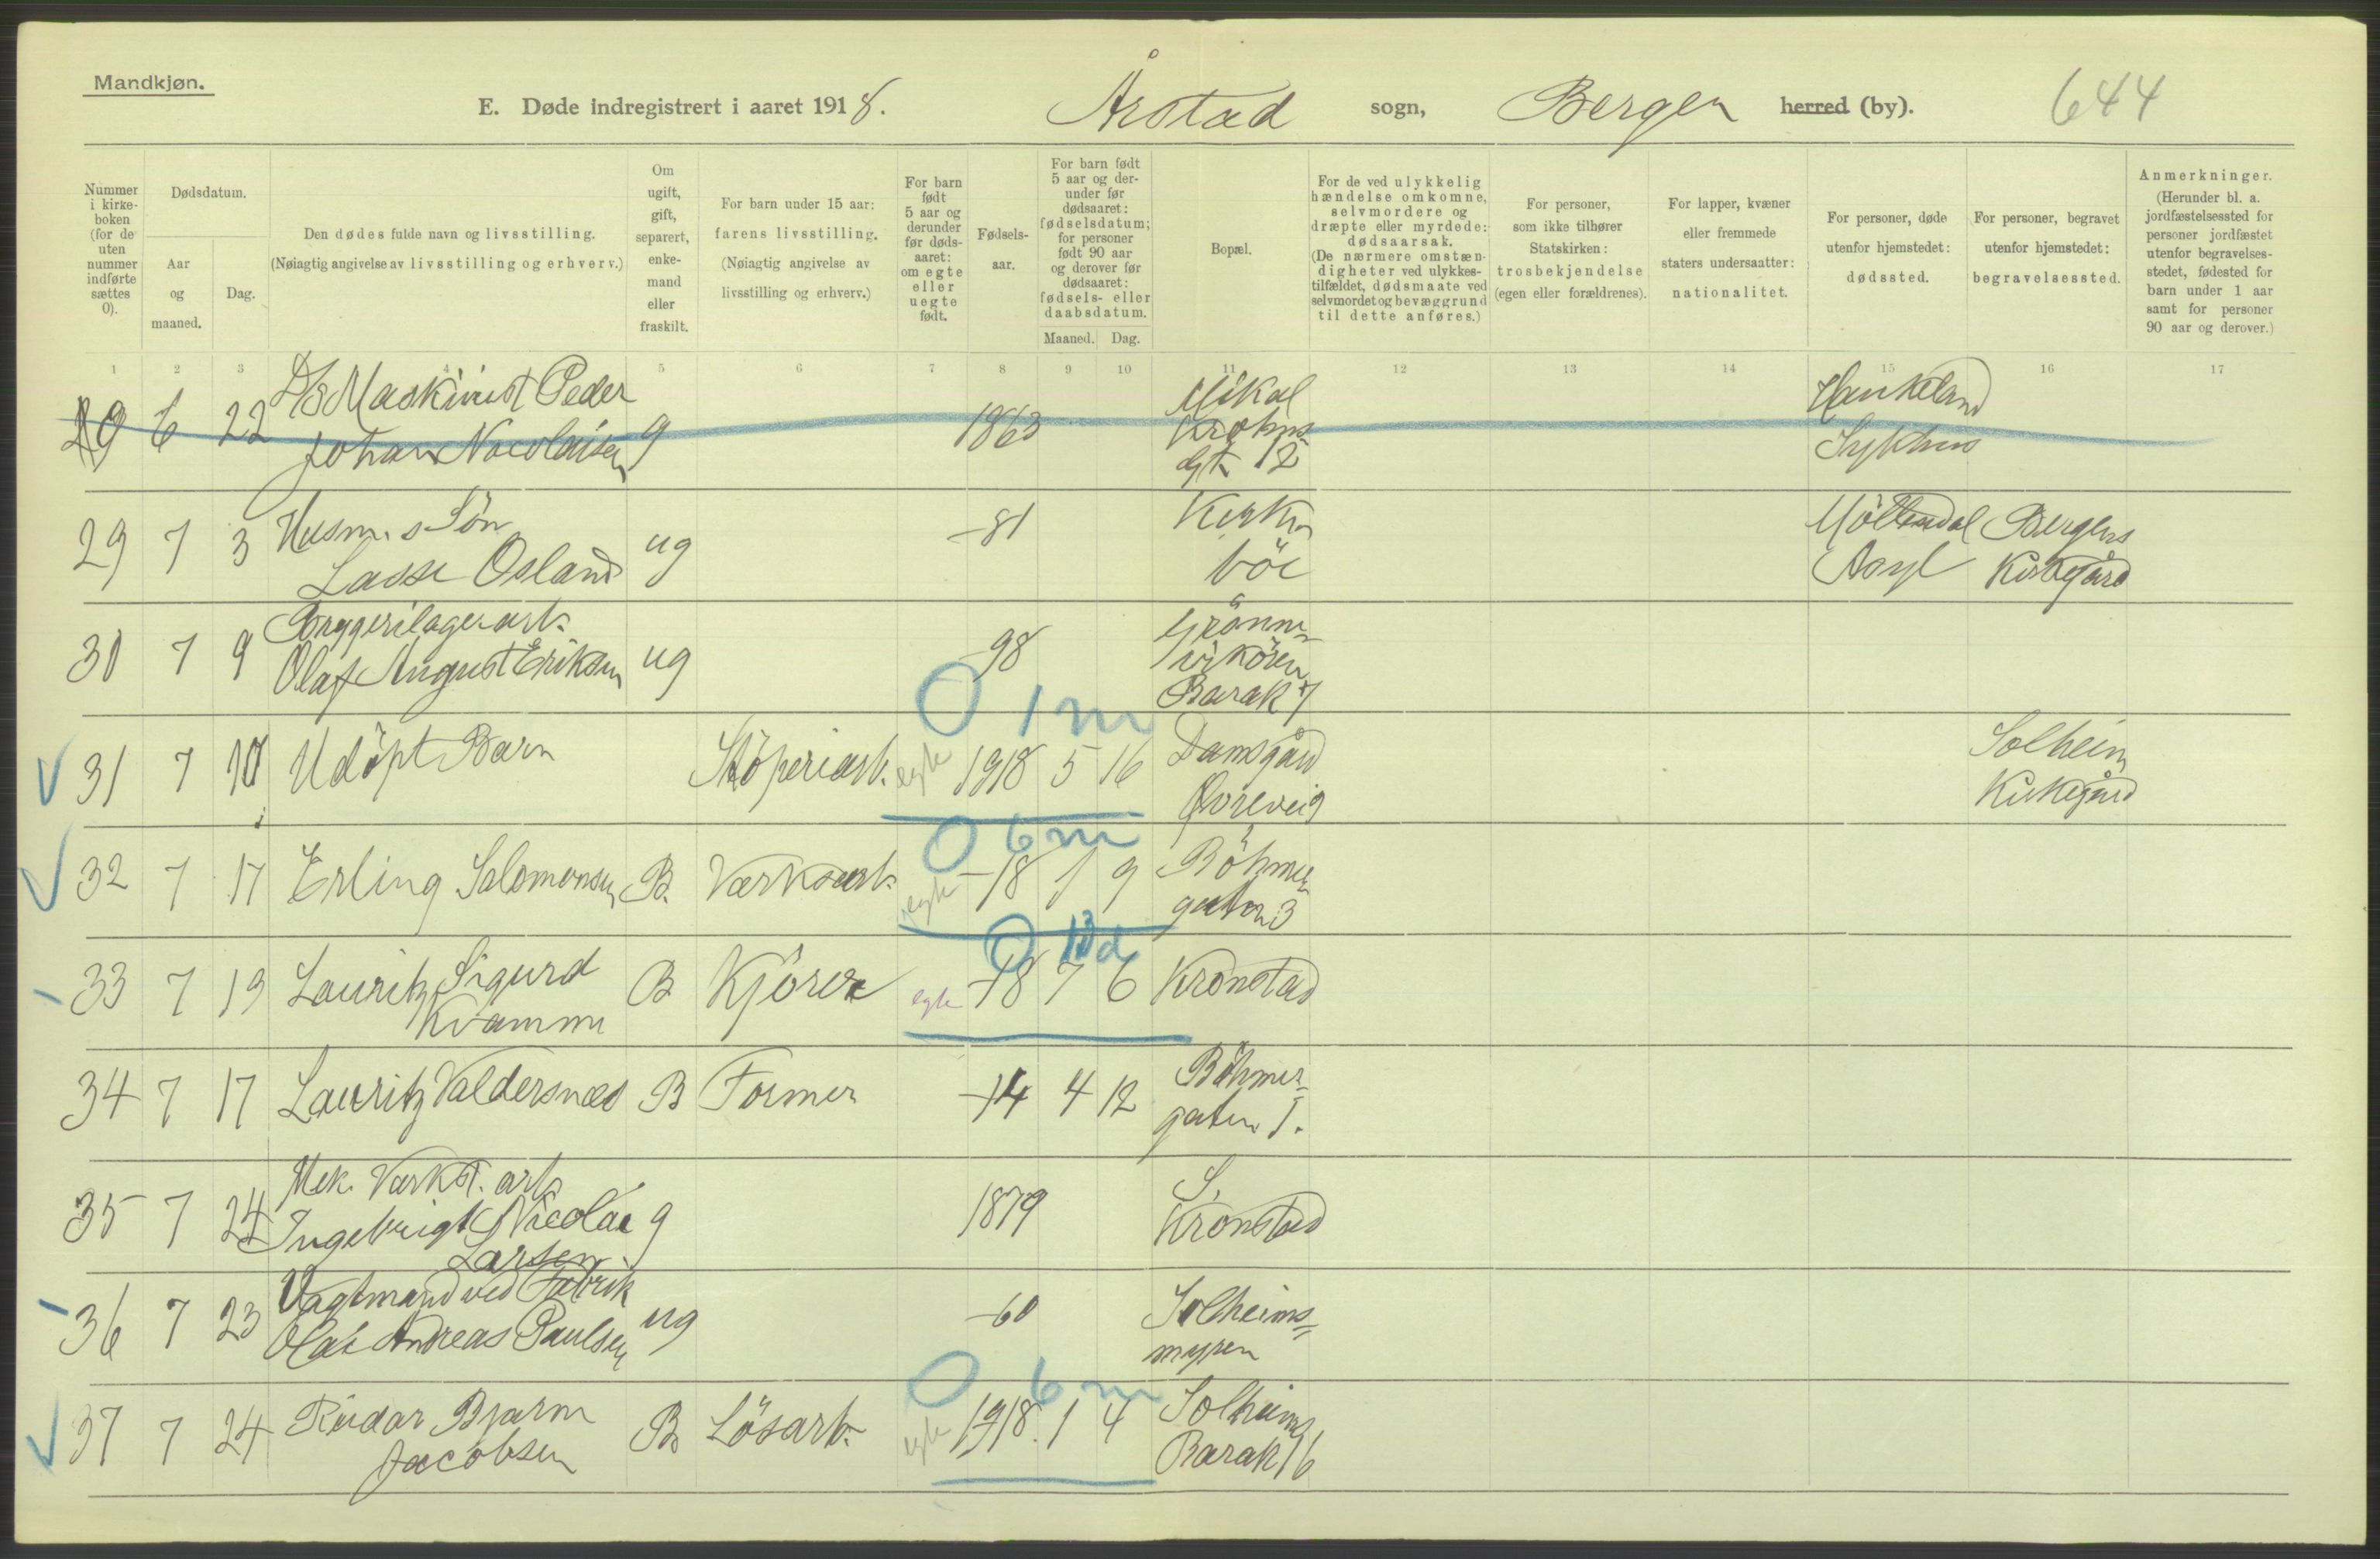 Mandkjøn.
E. Døde indregistrert i aaret 1918. Årstad sogn, Bergen herred (by). 644
Nummer i kirke- boken (for de uten nummer indførte sættes 0).
Dødsdatum.
Aar og maaned.
Dag.
Den dødes fulde navn og livsstilling.
(Nøiagtig angivelse av livsstilling og erhverv.)
Om ugift, gift, separert, enke- mand eller fraskilt.
For barn under 15 aar: farens livsstilling. (Nøiagtig angivelse av livsstilling og erhverv.)
For barn født 5 aar og derunder før døds- aaret: om egte eller uegte født.
Fødsels- aar.
For barn født 5 aar og der- under før dødsaaret: fødselsdatum; for personer født 90 aar og derover før dødsaaret: fødsels- eller daabsdatum.
Maaned. Dag.
Bopæl.
For de ved ulykkelig hændelse omkomne, selvmordere og dræpte eller myrdede: dødsaarsak. (De nærmere omstæn- digheter ved ulykkes- tilfældet, dødsmaate ved selvmordet og bevæggrund til dette anføres.)
For personer, som ikke tilhører Statskirken: trosbekjendelse (egen eller forældrenes).
For lapper, kvæner eller fremmede staters undersaatter: nationalitet.
For personer, døde utenfor hjemstedet: dødssted.
For personer, begravet utenfor hjemstedet: begravelsessted.
Anmerkninger. (Herunder bl. a. jordfæstelsessted for personer jordfæstet utenfor begravelses- stedet, fødested for barn under 1 aar samt for personer 90 aar og derover.)
1 2 3 4 5 6 7 8 9 10 11 12 13 14 15 16 17
29 6 22 D/S Maskinist Peder Johan Nicolaisen g 1863 Mikal Krohns Gt 12 Haukeland Sykhus
29 7 3 Husm. s Sön Lasse Osland ug -81 Kirke böe Möllendal Asyl Bergens Kirkegård
30 7 9 Bryggerilagerarb. Olaf August Eriksen ug -98 Grönne- vikören Barak 7
0 1 m
31 7 10 Udöpt Barn Stöperiarb. egte 1918 5 16 Damsgård Øvrevei 9 Solheim Kirkegård
0 6 m
32 7 17 Erling Salomonsen B. Værksarb. egte -18 1 9 Böhmer gaten 3
0 13 d
33 7 19 Lauritz Sigurd Kvamme B Kjörer egte -18 7 6 Kronstad
34 7 17 Lauritz Valdersnæs B Former -14 4 12 Böhmer- gaten 1.
35 7 24 Mek. Værkst. arb. Ingebrigt Nicolai Larsen g 1879 S. Kronstad
36 7 23 Vagtmand ved Fabrik Olai Andreas Paulsen ug -60 Solheims- myren
0 6 m
37 7 24 Reidar Bjarne Jacobsen B Lösarb. egte 1918. 1 4 Solheims Barak 16